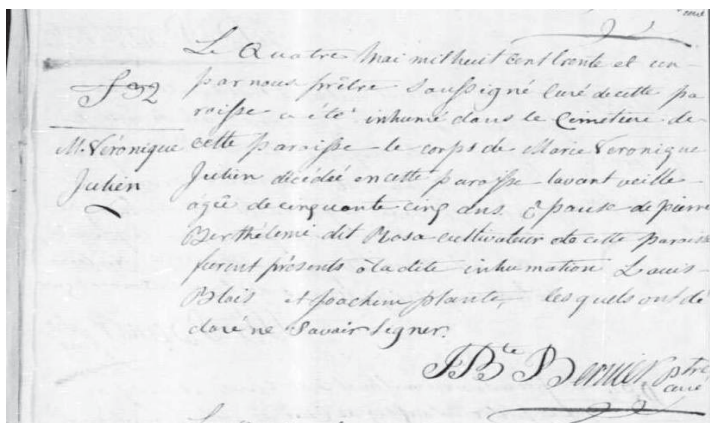 S 32
M. Véronique
Julien
Le Quatre Mai mil huit cent trente et un
par nous prêtre Soussigné Curé de cette pa
roisse a été inhumé dans le Cemetière de
cette paroisse le corps de Marie Véronique
Julien décédée en cette paroisse lavant veille
agée de cinquante cinq ans. Epouse de pierre
Berthélemi dit Rosa cultivateur de cette paroisse
furent présents à ladite inhumation Louis
Blais et Joachim plante, les quels ont dé
claré ne Savoir Signer.
JBte Bernier, ptre
curé